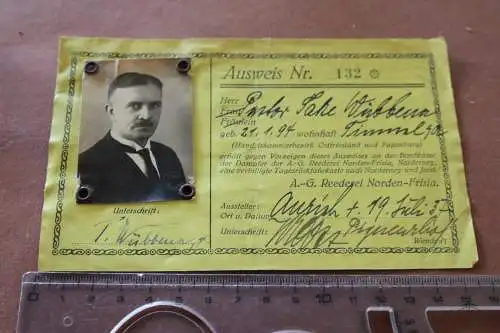 Ausweis Nr. 132
Herr
Frau Pastor Take Wübbena
Fräulein
geb. 21.1.94 wohnhaft Timmel
(Handelskammerbezirk Ostfriesland und Papenburg)
erhält gegen Vorzeigen dieses Ausweises an den
der Dampfer der A.-G. Reederei Norden-Frisia, Norddeich,
eine verbilligte Tagesrückfahrkarte nach Norderney und Juist.
A.-G. Reederei Norden-Frisia.
Aussteller:
Ort u. Datum: Aurich, 19. Juli 37
Unterschrift:
Unterschrift:
T. Wübbena
0 1 2 3 4 5 6 7 8 9 10